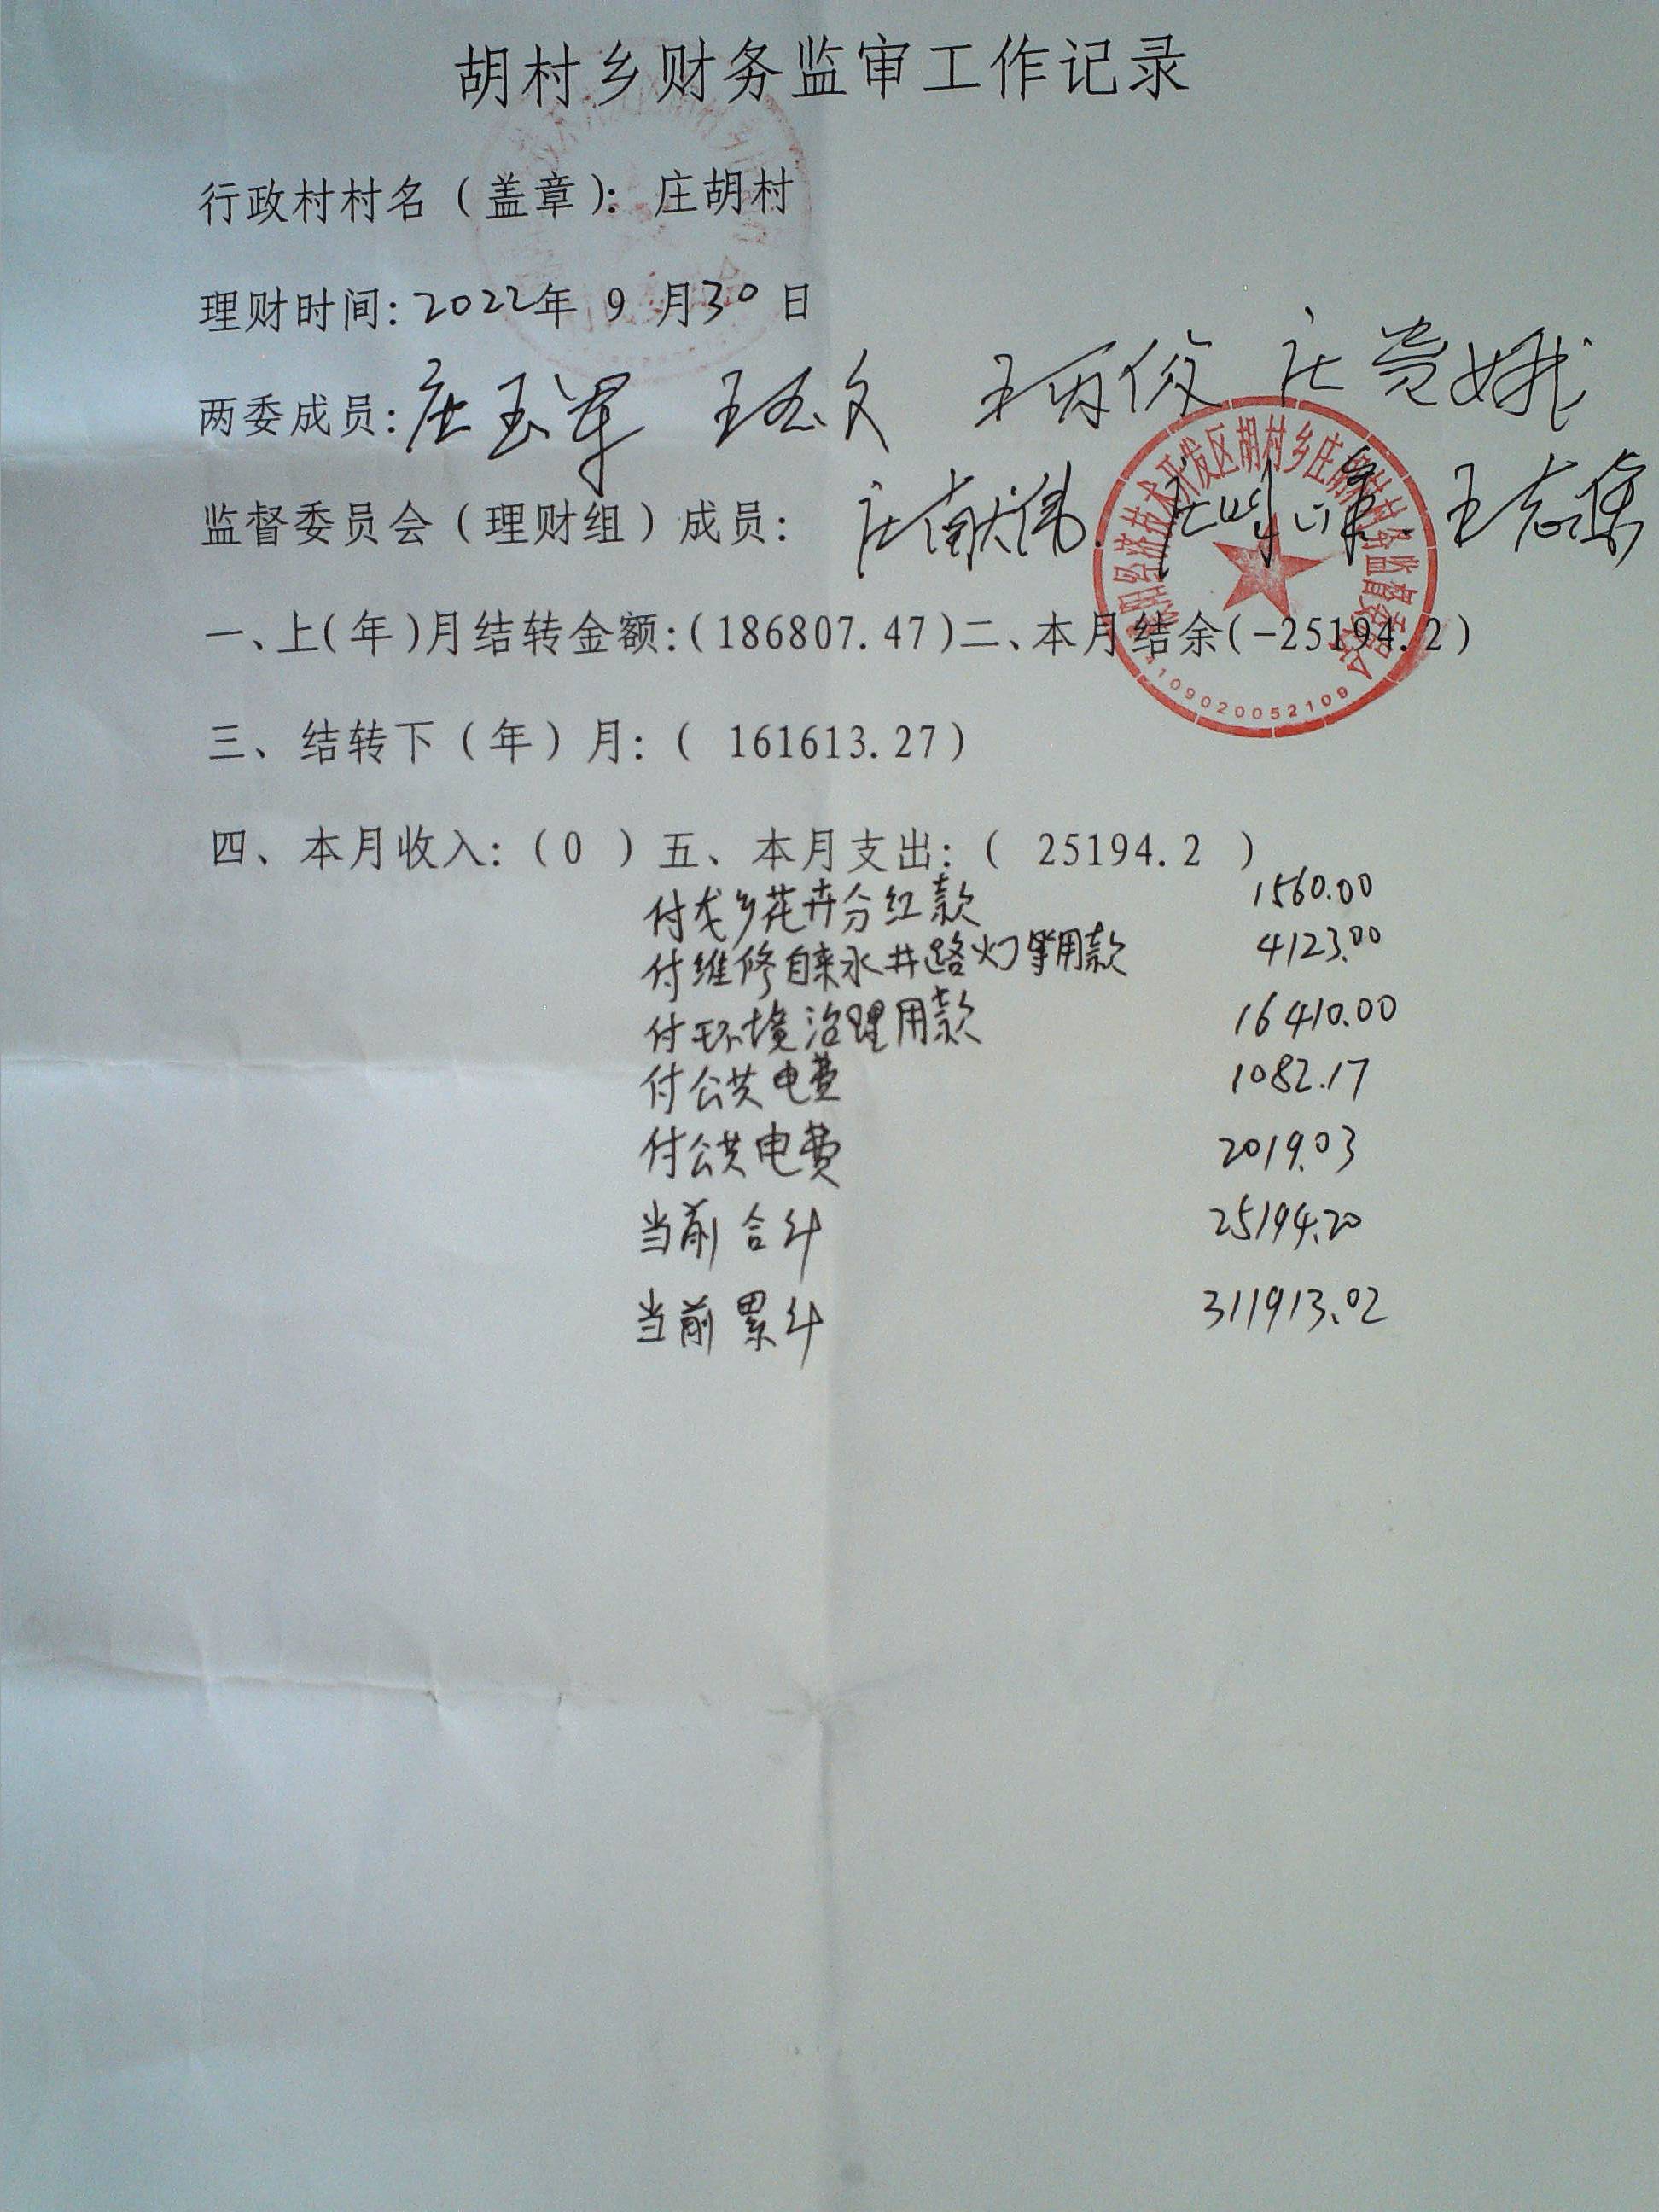 胡村乡财务监审工作记录
行政村村名（盖章）：庄胡村
理财时间：2022年 9 月30 日
两委成员：庄玉军 王志文 王丙俊 庄贵娥
监督委员会（理财组）成员：庄献伟 王志集
一、上(年)月结转金额：(186807.47)二、本月结余(-25194.2)
三、结转下（年）月：( 161613.27)
四、本月收入：(0 ) 五、本月支出：( 25194.2 )
付戈乡花卉分红款 1560.00
付维修自来水井路灯等用款 4123.00
付环境治理用款 16410.00
付公共电费 1082.17
付公共电费 2019.03
当前合计 25194.20
当前累计 311913.02
经济技术开发区胡村乡庄胡村村务监督委员会
4109020052109